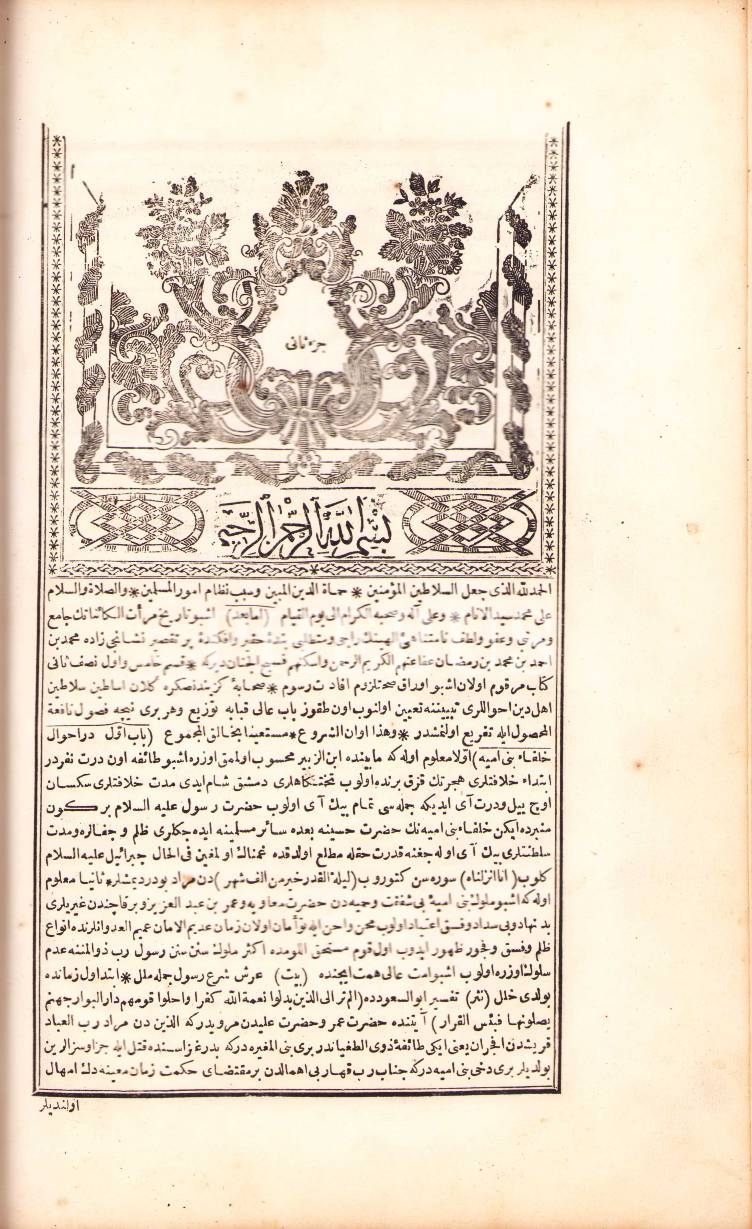 جزء ثانى
بسم الله الرحمن الرحيم
الحمد لله الذى جعل السلاطين المؤمنين * حماة الدين المبين وسبب نظام امور المسلمين * والصلاة والسلام
على محمد سيد الانام * وعلى آله وصحبه الكرام الى يوم القيام (اما بعد) اشبو تاريخ مرأت الكائناتك جامع
ومرتبى وعفو ولطف نامتناهئ الهينك راجى ومتطلبى بندۀ حقير وافكندۀ پر تقصير نشانجى زاده محمد بن
احمد بن محمد بن رمضان عفا عنهم الكريم الرحمن واسكنهم فسيح الجنان ديركه * قسم خامس واول نصف ثانى
كتاب مرقوم اولان اشبو اوراق صحت لزوم افادت رسوم * صحابۀ كزيندنصكره كلان اساطين سلاطين
اهل دين احواللرى تبييننه تعيين اولنوب اون طقوز باب عالى قبابه توزيع وهر برى نيجه فصول نافعة
المحصول ايله تفريع اولنمشدر * وهذا اوان الشروع * مستعينا بخالق المجموع (باب اول در احوال
خلفاء بنى اميه) اولا معلوم اوله كه مابينده ابن الزبير محسوب اولمق اوزره اشبو طائفه اون درت نفردر
ابتداء خلافتلرى هجرتك قرق برنده اولوب تختكاهلرى دمشق شام ايدى مدت خلافتلرى سكسان
اوچ ييل ودرت آى ايديكه جمله سى تمام بيك آى اولوب حضرت رسول عليه السلام بر كون
منبرده ايكن خلفاء بنى اميه نك حضرت حسينه بعده سائر مسلمينه ايده جكلرى ظلم و جفالره ومدت
سلطنتلرى بيك آى اوله جغنه قدرت حقله مطلع اولدقده غمناك اولمغين فى الحال جبرائيل عليه السلام
كلوب (انا انزلناه) سوره سن كتوروب (ليلة القدر خير من الف شهر) دن مراد بودر ديمشلر * ثانيا معلوم
اوله كه اشبو ملوك بنى اميۀ بى شفقت وحميه دن حضرت معاويه وعمر بن عبد العزيز و بر قاچندن غيريلرى
بد نهاد وبى سداد وفسق اعتياد اولوب محن واحن ايله توأمان اولان زمان عديم الامان عميم العدوانلرنده انواع
ظلم وفسق وفجور ظهور ايدوب اول قوم مستحق اللومده اكثر ملوك سنن سنن رسول رب ذو المننه عدم
سلوك اوزره اولوب اشبو امت عالى همت ايچنده (بيت) عرش شرع رسول جمله ملل * ابتدا اول زمانده
بولدى خلل (نثر) تفسير ابو السعودده (الم تر الى الذين بدلوا نعمة الله كفرا واحلوا قومهم دار البوار جهنم
يصلونها فبئس القرار) آيتنده حضرت عمر وحضرت عليدن مرويدركه الذين دن مراد رب العباد
قريشدن افجران يعنى ايكى طائفۀ ذوى الطغياندر برى بنى المغيره دركه بدر غزاسنده قتل ايله جزاوسزالرين
بولديلر برى دخى بنى اميه دركه جناب رب قهار بى اهمالدن بر مقتضاى حكمت زمان معينه دك امهال
اولنديلر